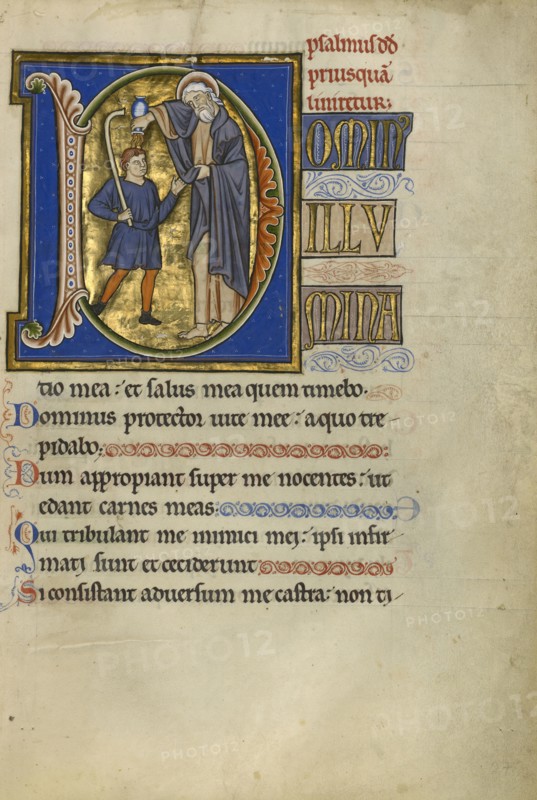 psalmus dd
priusquā
liniretur;
D OMIN'
ILLV
MINA
tio mea: et salus mea quem timebo.
Dominus protector uite mee: a quo tre-
pidabo;
Dum appropiant super me nocentes: ut
edant carnes meas:
Qui tribulant me inimici mei: ipsi infir
mati sunt et ceciderunt
Si consistant adversum me castra: non ti-
PHOTO12
PHOTO12
PHOTO12
PHOTO12
PHOTO12